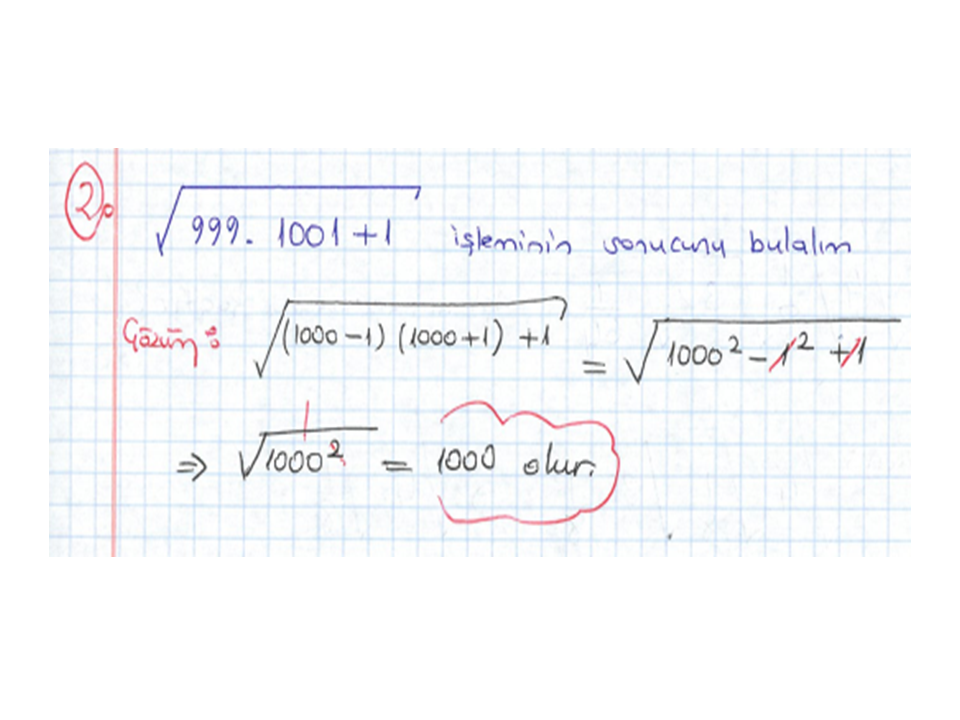 2. √(999. 1001 + 1) işleminin sonucunu bulalım
Çözüm: √((1000 − 1) (1000 + 1) + 1) = √(1000² − 1² + 1)
⇒ √(1000²) = 1000 olur.